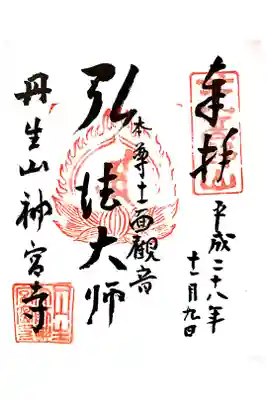 奉拝
平成二十八年
十一月九日
本尊十一面觀音
弘法大師
丹生山神宮寺